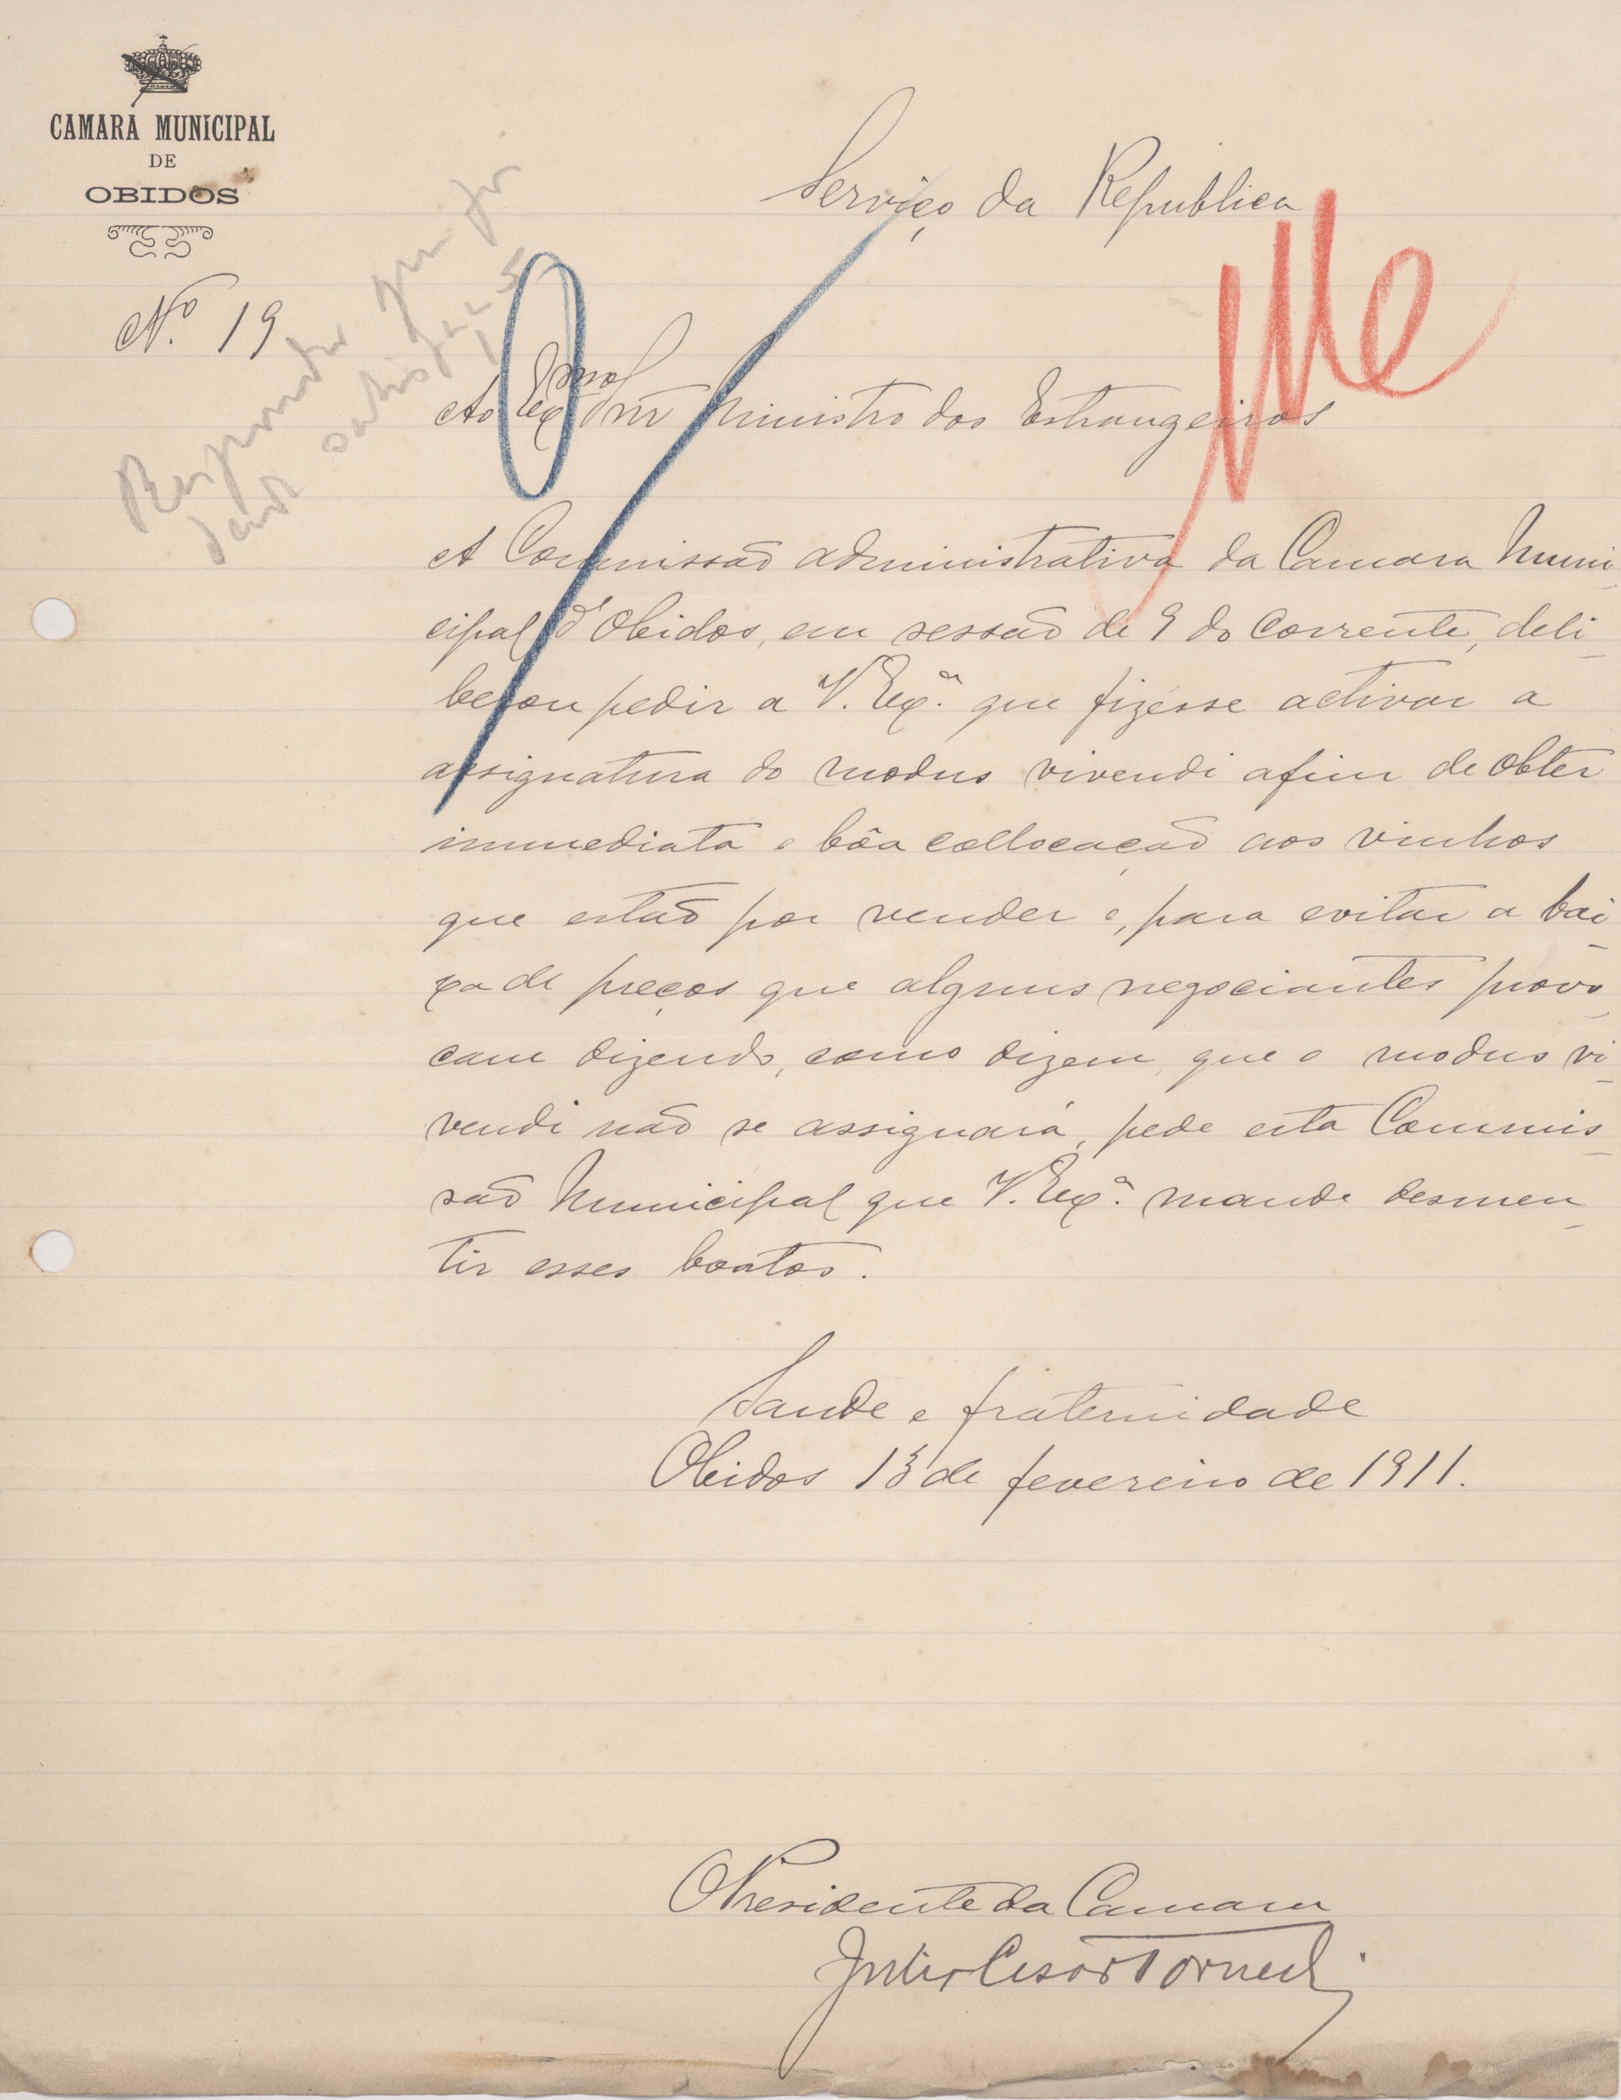 CAMARA MUNICIPAL
DE
OBIDOS
Serviço da Republica
Nº. 19
Responder que foi
dando satisfação
Ao Exmo Snr Ministro dos Estrangeiros
A Commissão administrativa da Camara Muni
cipal d'Obidos, em sessão de 9 do corrente, deli
berou pedir a V. Exª. que fizesse activar a
assignatura do modus vivendi afim de obter
immediata e bôa collocação aos vinhos
que estão por vender e, para evitar a bai
xa de preços que alguns negociantes provo
cam dizendo, como dizem, que o modus vi
vendi não se assignará, pede esta Commis
são Municipal que V. Exª. mande desmen
tir esses boatos.
Saude e fraternidade
Obidos 13 de fevereiro de 1911.
O Presidente da Camara
Julio Cesar